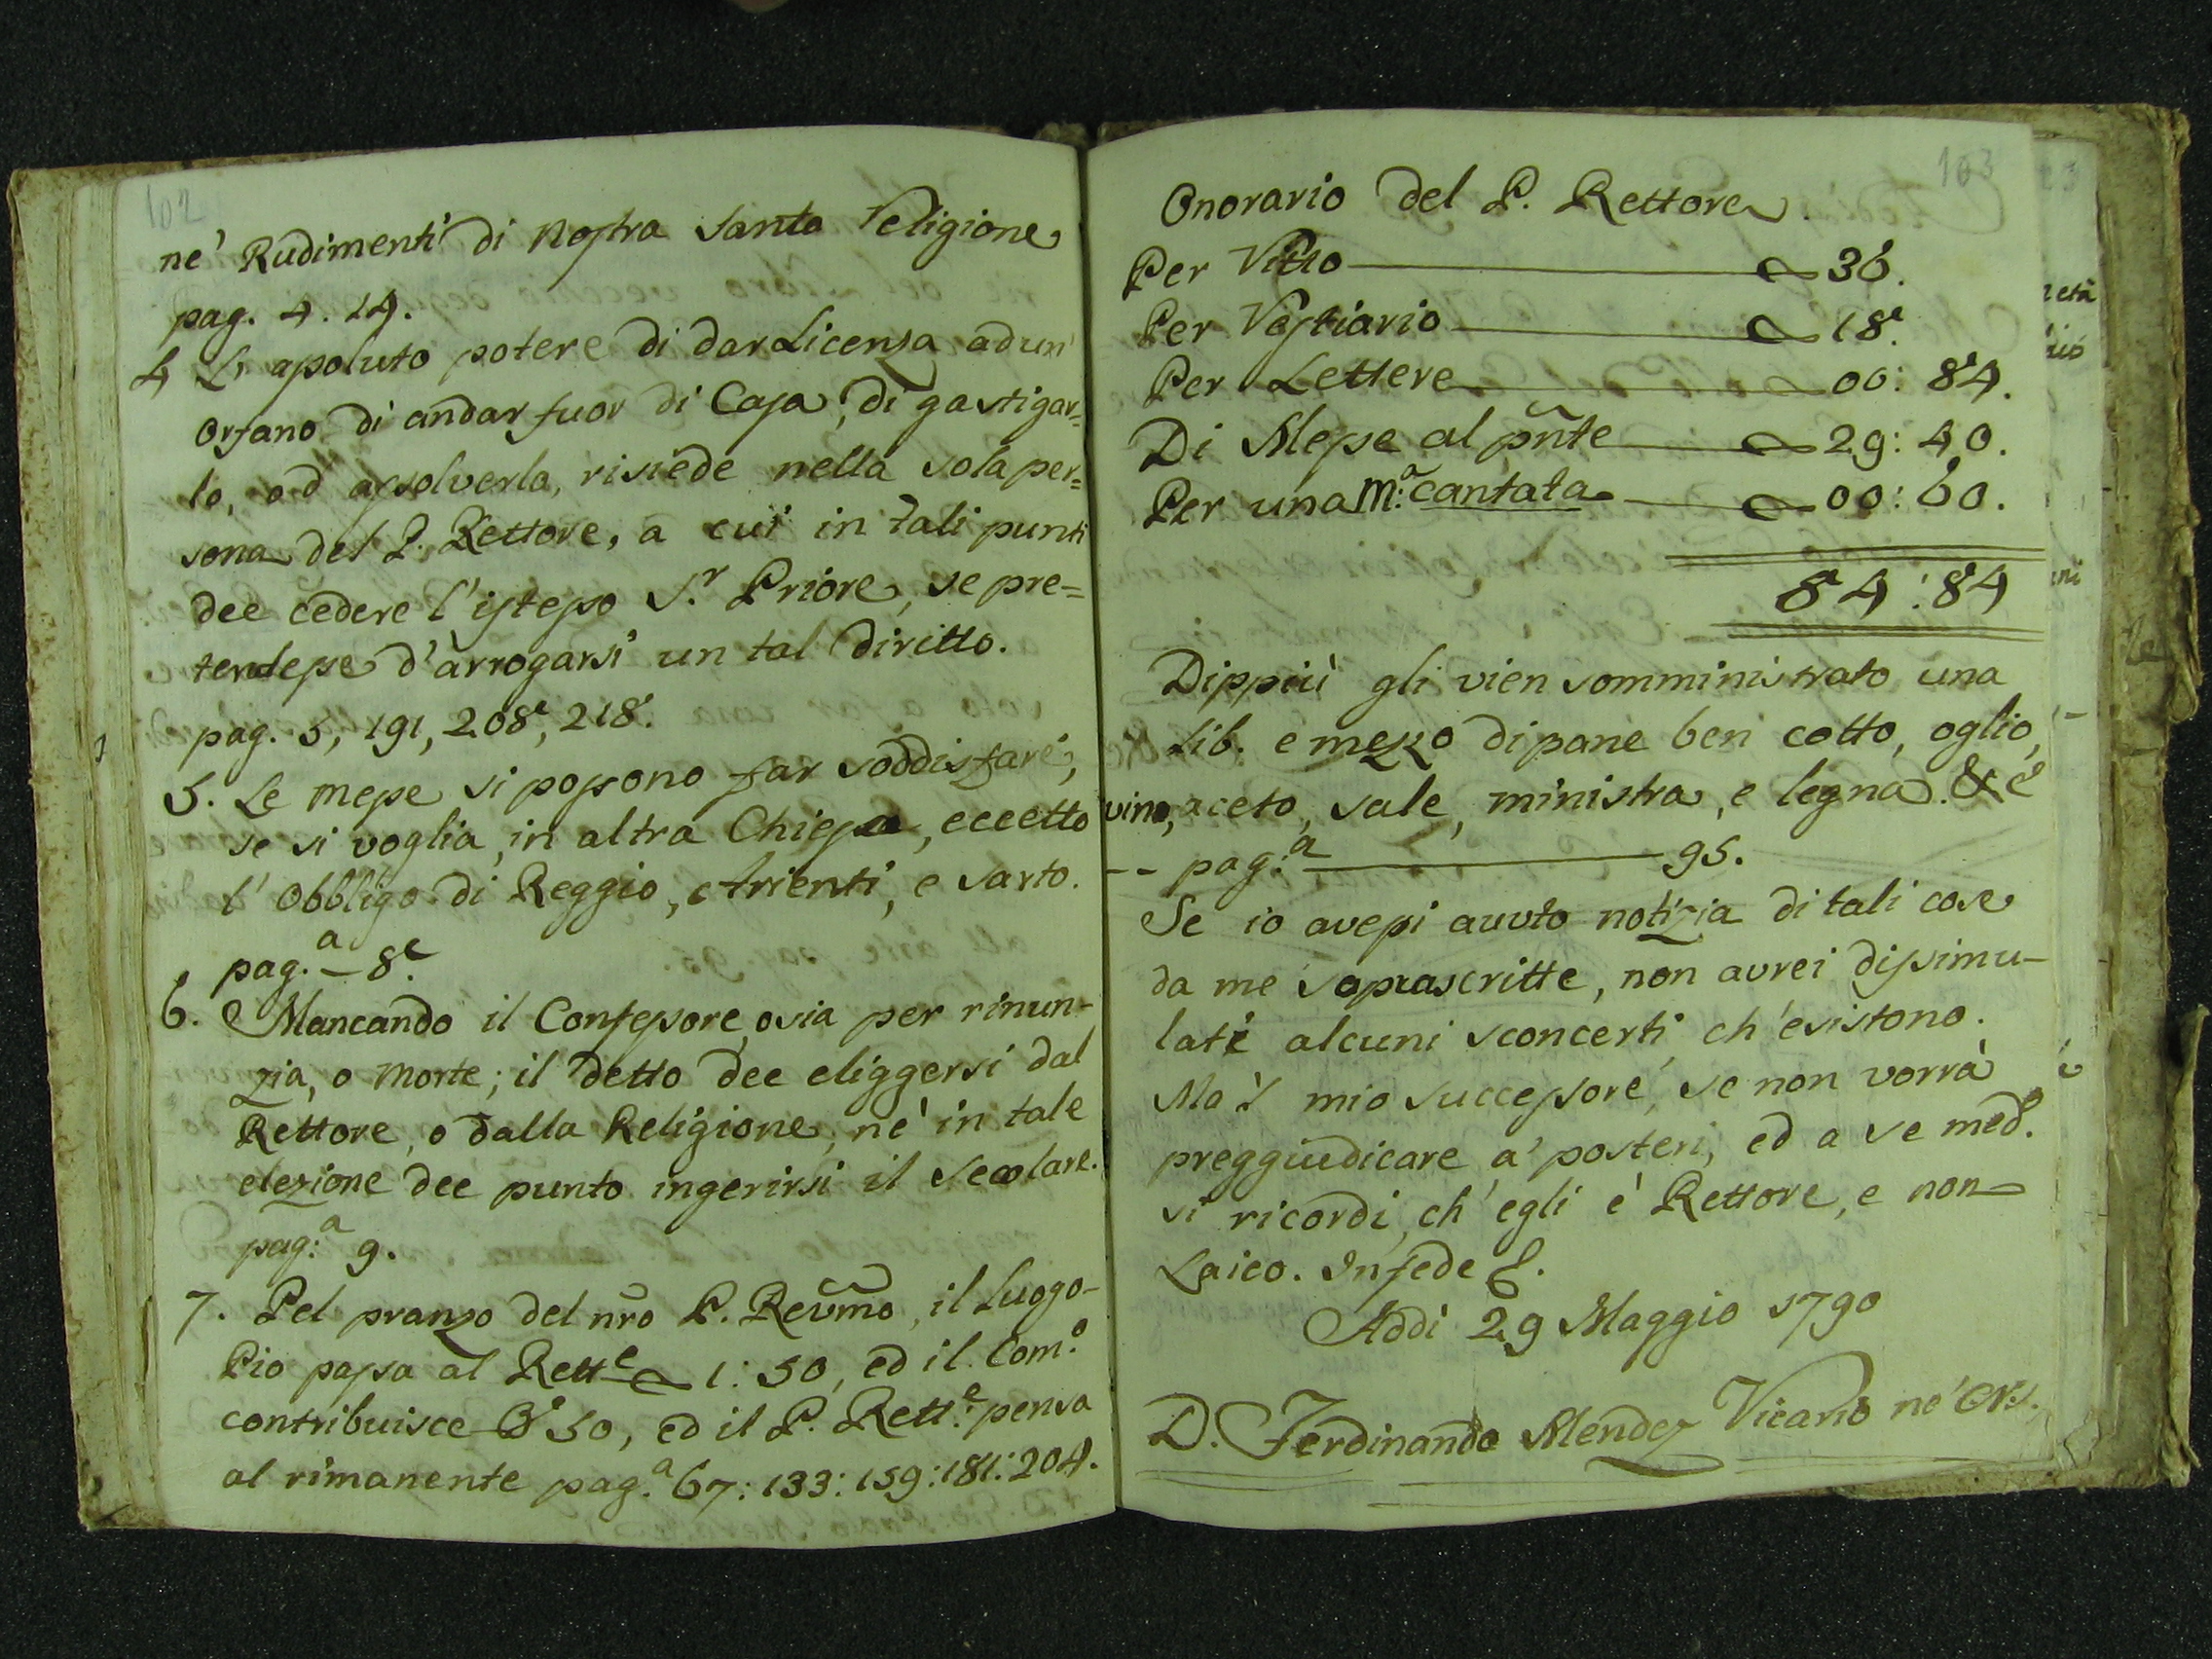 102
ne' Rudimenti di nostra Santa Religione
pag. 4. 14.
4 L' assoluto potere di dar Licenza ad un'
Orfano di andar fuor di Casa, di gastigar=
lo, od assolverlo, risiede nella sola per=
sona del P. Rettore, a cui in tali punti
dee cedere l'istesso S.r Priore, se pre=
tendesse d'arrogarsi un tal diritto.
pag. 5, 191, 208, 218.
5. Le messe si possono far soddisfare,
se si voglia, in altra Chiesa, eccetto
l'obbligo di Reggio, Arienti, e Sarto.
pag.a - 8.
6. Mancando il Confessore, osia per rinun-
zia, o morte; il detto dee eliggersi dal
Rettore, o dalla Religione, nè in tale
elezione dee punto ingerirsi il Secolare.
pag:a 9.
7. Pel pranzo del nr̃o P. Reṽmo, il Luogo-
Pio passa al Rett.e 1:50, ed il Com.o
contribuisce 50, ed il P. Rett:e pensa
al rimanente pag.a 67: 133: 159: 181: 204.
103
Onorario del P. Rettore.
Per Vitto 36.
Per Vestiario 18.
Per Lettere 00: 84.
Di Messe al pñte 29: 40.
Per una M:a cantata 00: 60.
84:84
Dippiù gli vien somministrato una
Lib. e mezzo di pane ben cotto, oglio,
vino, aceto, sale, ministra, e legna. &c
-- pag:a 95.
Se io avessi avuto notizia di tali cose
da me soprascritte, non avrei dissimu-
lati alcuni sconcerti, ch'esistono.
Ma 'l mio successore, se non vorrà
preggiudicare a' posteri, ed a se med.o
si ricordi, ch'egli è Rettore, e non
Laico. In fede
Addì 29 Maggio 1790
D. Ferdinando Mendez Vicario ne' Ors.